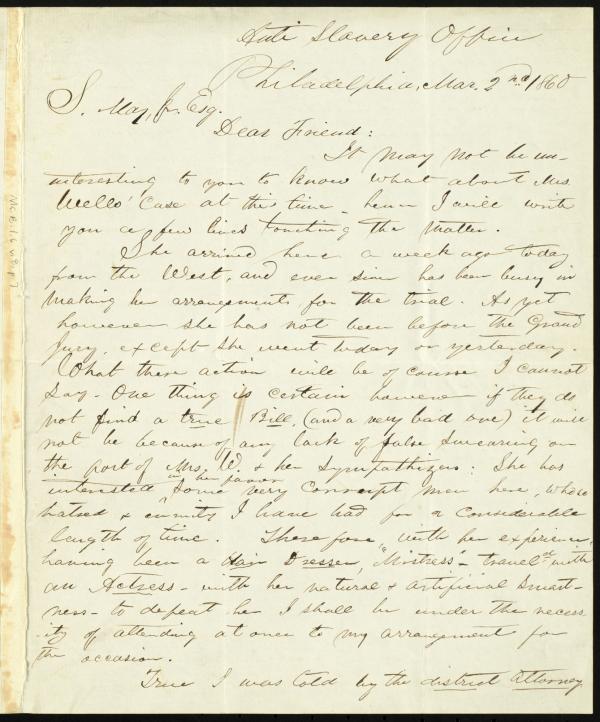 Anti Slavery Office
Philadelphia, Mar. 2nd, 1860
S. May, Jr. Esq.
Dear Friend:
It may not be un-
interesting to you to know what about Mrs
Wells' Case at this time - hence I will write
you a few lines touching the Matter.
She arrived here a week ago today
from the West, and ever since has been busy in
making her arrangements for the trial. As yet
however she has not been before the Grand
Jury, except she went today or yesterday.
What there action will be of course I cannot
Say - One thing is certain however if they do
not find a true Bill, (and a very bad one) it will
not be because of any lack of false swearing on
the part of Mrs. W. & her Sympathizers: She has
interested in her favor some very corrupt men here, whose
hatred & enmity I have had for a considerable
length of time. Therefore, with her experience,
having been a Hair Dresser, "Mistress" - travelr with
an Actress - with her natural & artificial Smart-
ness - to defeat her I shall be under the necess
ity of attending at once to my arrangement for
the occasion.
True I was told by the district Attorney